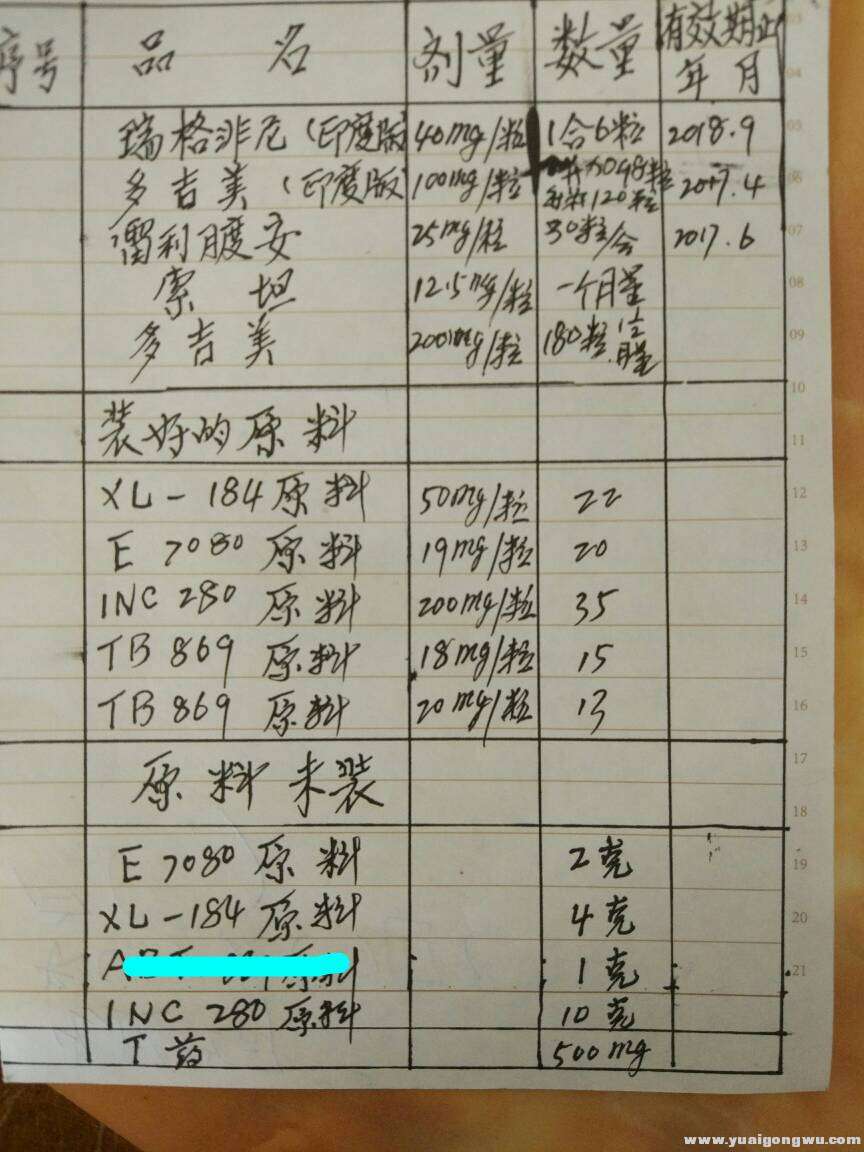 序号 品名 剂量 数量 有效期止年月
瑞格非尼(印度版) 40mg/粒 1合6粒 2018.9
多吉美(印度版) 100mg/粒 120粒 2017.4
雷利度安 25mg/粒 30粒/合 2017.6
索坦 12.5mg/粒 一个月量
多吉美 200mg/粒 180粒
装好的原料
XL-184原料 50mg/粒 22
E7080原料 19mg/粒 20
INC280原料 200mg/粒 35
TB869原料 18mg/粒 15
TB869原料 20mg/粒 13
原料未装
E7080原料 2克
XL-184原料 4克
1克
INC280原料 10克
T药 500mg
03
04
05
06
07
08
09
10
11
12
13
14
15
16
17
18
19
20
21
www.yuaigongwu.com